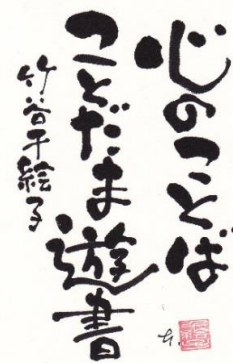 心のことば
ことだま遊書
竹谷千絵子